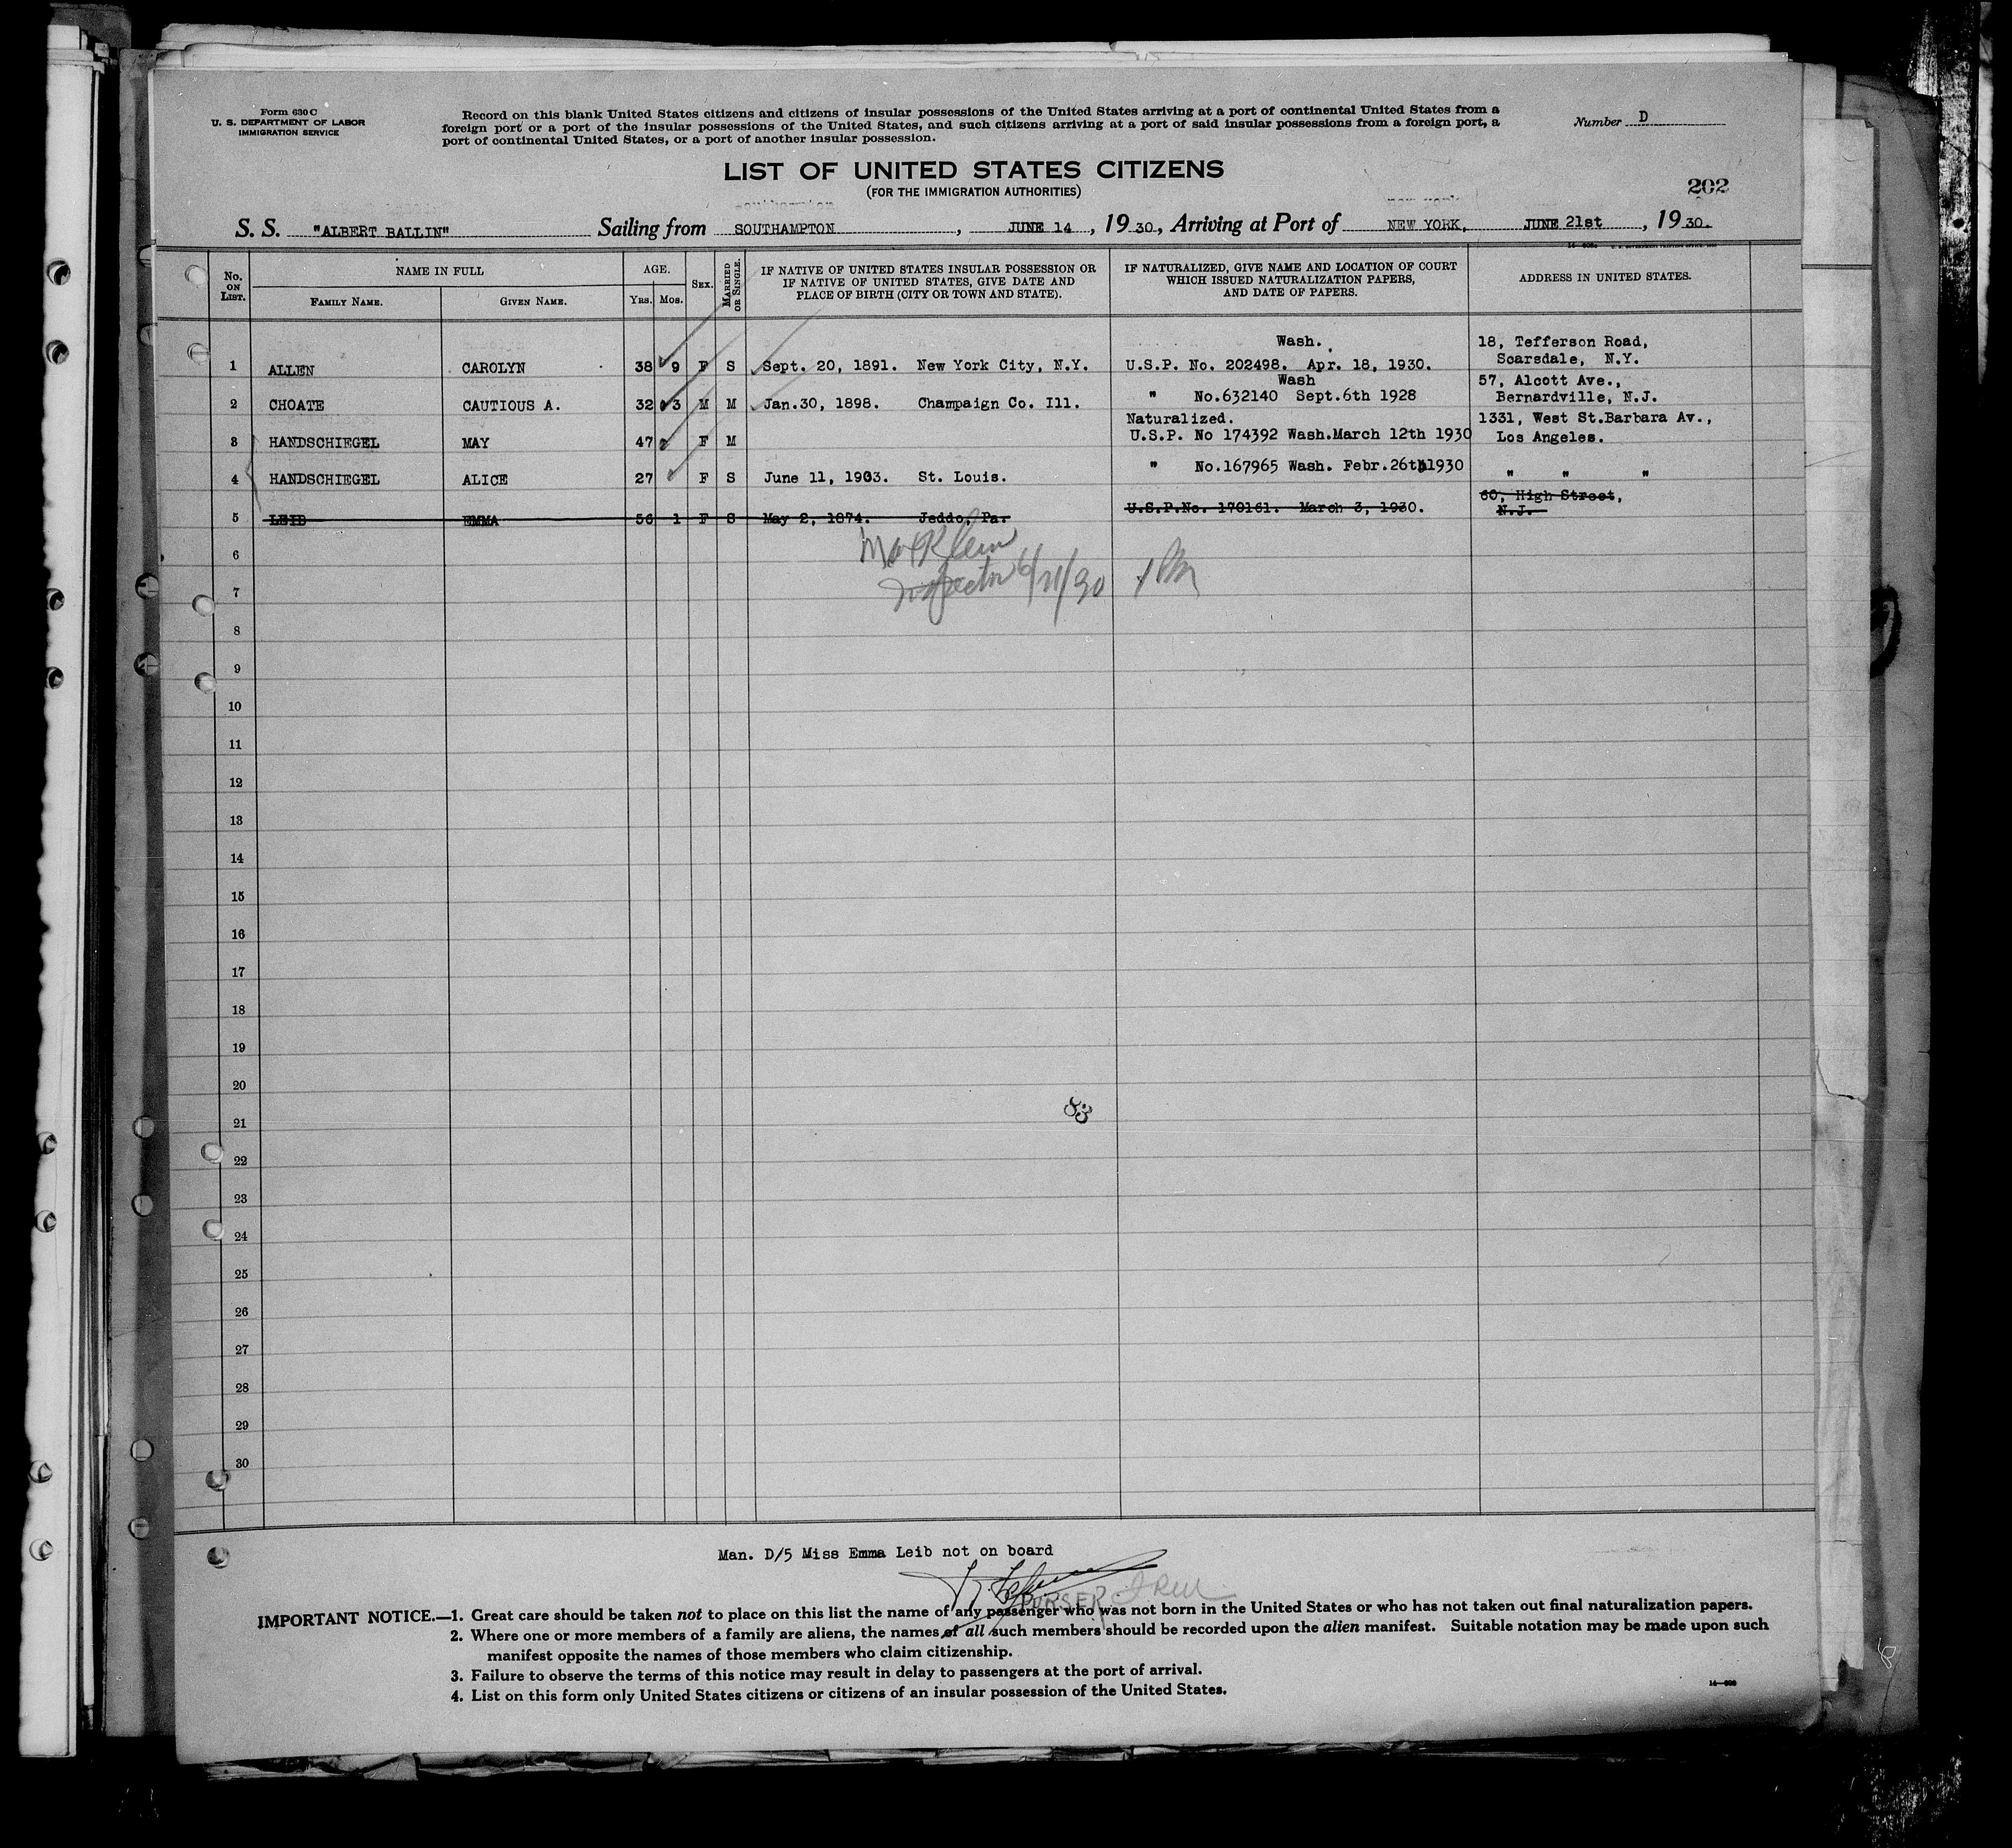 Form 630 C
U. S. DEPARTMENT OF LABOR
IMMIGRATION SERVICE
Record on this blank United States citizens and citizens of insular possessions of the United States arriving at a port of continental United States from a
foreign port or a port of the insular possessions of the United States, and such citizens arriving at a port of said insular possessions from a foreign port, a
port of continental United States, or a port of another insular possession.
Number D
LIST OF UNITED STATES CITIZENS
(FOR THE IMMIGRATION AUTHORITIES)
202
S. S. "ALBERT BALLIN" Sailing from SOUTHAMPTON, JUNE 14, 1930, Arriving at Port of NEW YORK, JUNE 21st, 1930.
No. ON LIST. NAME IN FULL AGE. SEX. MARRIED OR SINGLE. IF NATIVE OF UNITED STATES INSULAR POSSESSION OR IF NATIVE OF UNITED STATES, GIVE DATE AND PLACE OF BIRTH (CITY OR TOWN AND STATE). IF NATURALIZED, GIVE NAME AND LOCATION OF COURT WHICH ISSUED NATURALIZATION PAPERS, AND DATE OF PAPERS. ADDRESS IN UNITED STATES.
FAMILY NAME. GIVEN NAME. YRS. MOS.
Wash. 18, Tefferson Road,
1 ALLEN CAROLYN 38 9 F S Sept. 20, 1891. New York City, N.Y. U.S.P. No. 202498. Apr. 18, 1930. Scarsdale, N.Y.
Wash 57, Alcott Ave.,
2 CHOATE CAUTIOUS A. 32 3 M M Jan.30, 1898. Champaign Co. Ill. " No.632140 Sept.6th 1928 Bernardville, N.J.
Naturalized. 1331, West St.Barbara Av.,
3 HANDSCHIEGEL MAY 47 F M U.S.P. No 174392 Wash.March 12th 1930 Los Angeles.
4 HANDSCHIEGEL ALICE 27 F S June 11, 1903. St. Louis. " No.167965 Wash. Febr.26th 1930 " " "
60, High Street,
5 LEIB EMMA 56 1 F S May 2, 1874. Jeddo, Pa. U.S.P.No. 170161. March 3, 1930. N.J.
6
Max Klein
7 Inspector 6/21/30
8
9
10
11
12
13
14
15
16
17
18
19
20
83
21
22
23
24
25
26
27
28
29
30
Man. D/5 Miss Emma Leib not on board
PURSER
IMPORTANT NOTICE.—1. Great care should be taken not to place on this list the name of any passenger who was not born in the United States or who has not taken out final naturalization papers.
2. Where one or more members of a family are aliens, the names of all such members should be recorded upon the alien manifest. Suitable notation may be made upon such
manifest opposite the names of those members who claim citizenship.
3. Failure to observe the terms of this notice may result in delay to passengers at the port of arrival.
4. List on this form only United States citizens or citizens of an insular possession of the United States.